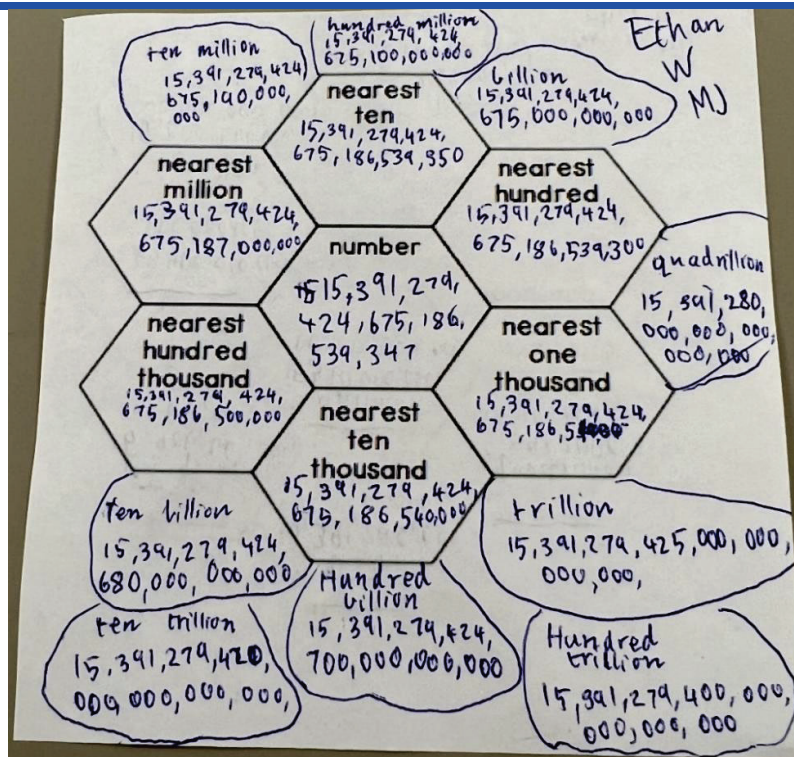 ten million
15,391,279,424
675,190,000,
000
hundred million
15,391,279,424,
675,100,000,000
billion
15,391,279,424,
675,000,000,000
Ethan
W
MJ
nearest
ten
15,391,279,424,
675,186,539,350
nearest
million
15,391,279,424,
675,187,000,000
nearest
hundred
15,391,279,424,
675,186,539,300
number
15,391,279,
424,675,186,
539,347
quadrillion
15,391,280,
000,000,000,
000,000
nearest
hundred
thousand
15,391,279,424,
675,186,500,000
nearest
one
thousand
15,391,279,424,
nearest
ten
thousand
15,391,279,424,
675,186,540,000
ten billion
15,391,279,424,
680,000,000,000
trillion
15,391,279,425,000,000,
000,000,
ten trillion
15,391,279,420,
000,000,000,000,
Hundred
billion
15,391,279,424,
700,000,000,000
Hundred
trillion
15,391,279,400,000,
000,000,000